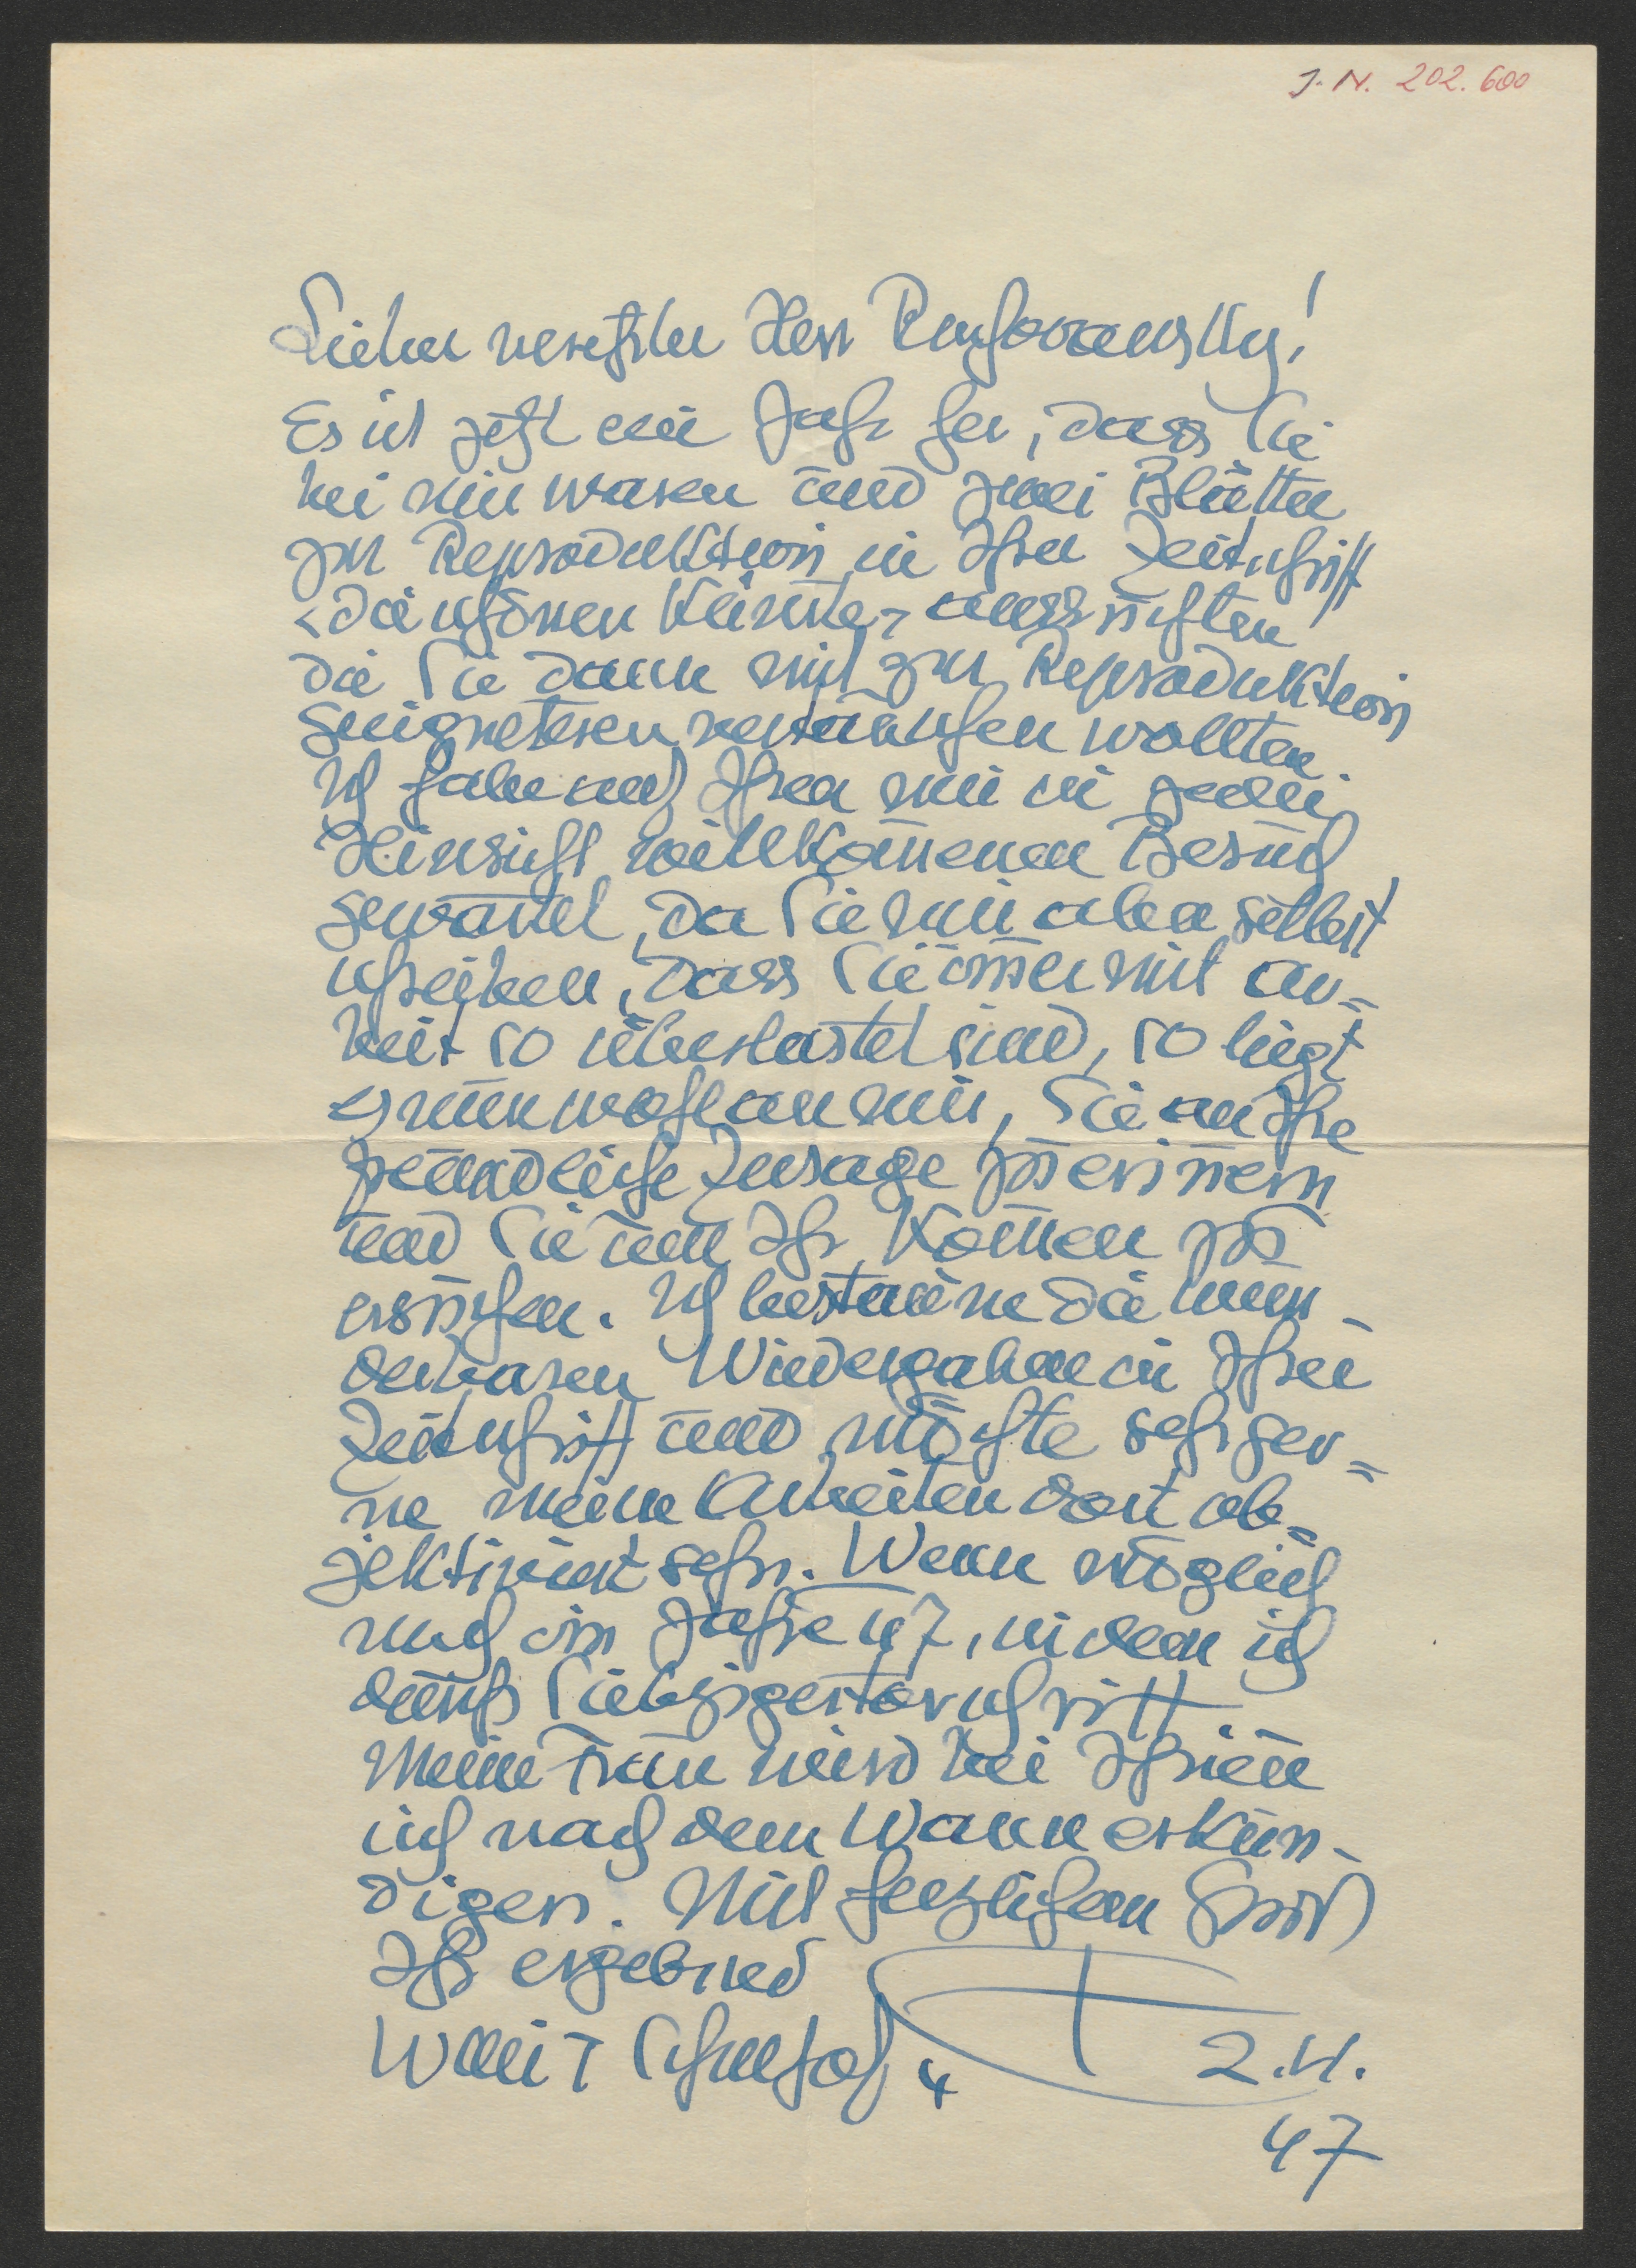 J.N. 202.600
Lieber verehrter Herr
Es ist jetzt ein Jahr her, dass Sie
bei mir waren und zwei Blätter
zur Reproduktion in Ihrer Zeitschrift
"die schönen Künste" aussuchten
die Sie dann mit zur Reproduktion
geeigneteren vertauschen wollten.
Ich habe auf Ihren mir in jeder
Hinsicht willkom̅enen Besuch
gewartet, da Sie mir aber selbst
schreiben, dass Sie im̅er mit Ar=
beit so überlastet sind, so liegt
es nun wohl an mir, Sie an Ihre
freundliche Zusage zu erin̅ern
und Sie um Ihr Kom̅en zu
ersuchen. Ich bestaune die wun-
derbaren Wiedergaben in Ihrer
Zeitschrift und möchte sehr ger=
ne meine Arbeiten dort ob=
jektiviert sehn. Wenn möglich
noch im Jahre 47, in dem ich
durchs Siebzigertor schritt.
Meine Frau wird bei Ihnen
sich nach dem Wann erkun-
digen. Mit herzlichem Gruß
Ihr ergebner
Wien 4
2.11.
47